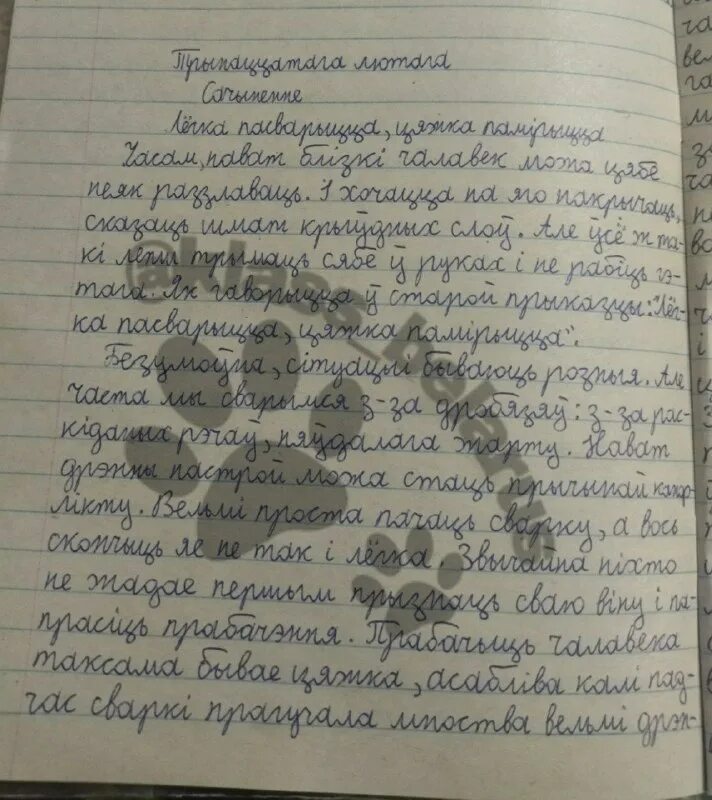 Трынаццатага лютага
Сачыненне
Лёгка пасварыцца, цяжка памірыцца
Часам, нават блізкі чалавек можа цябе
неяк раззлаваць. І хочацца на яго накрычаць,
сказаць шмат крыўдных слоў. Але ўсё ж та-
кі лепш трымаць сябе ў руках і не рабіць гэ-
тага. Як гаворыцца ў старой прыказцы: "Лёг-
ка пасварыцца, цяжка памірыцца".
Безумоўна, сітуацыі бываюць розныя. Але
часта мы сварымся з-за дробязяў: з-за рас-
кіданых рэчаў, няўдалага жарту. Нават
дрэнны настрой можа стаць прычынай канф-
лікту. Вельмі проста пачаць сварку, а вось
скончыць яе не так і лёгка. Звычайна ніхто
не жадае першым прызнаць сваю віну і па-
прасіць прабачэння. Прабачыць чалавека
таксама бывае цяжка, асабліва калі пад-
час сваркі прагучала мноства вельмі дрэн-
@klass_belarus